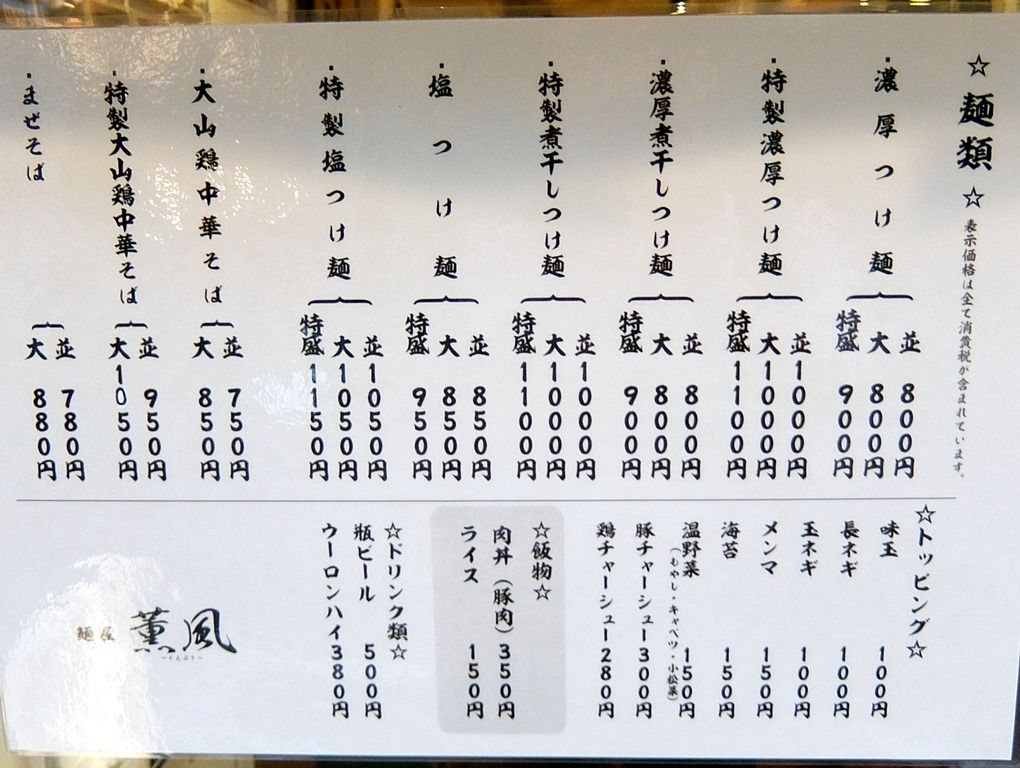 ☆麺類☆
表示価格は全て消費税が含まれています。
・濃厚つけ麺
並 800円
大 800円
特盛 900円
・特製濃厚つけ麺
並 1000円
大 1000円
特盛 1100円
・濃厚煮干しつけ麺
並 800円
大 800円
特盛 900円
・特製煮干しつけ麺
並 1000円
大 1000円
特盛 1100円
・塩つけ麺
並 850円
大 850円
特盛 950円
・特製塩つけ麺
並 1050円
大 1050円
特盛 1150円
・大山鶏中華そば
並 750円
大 850円
・特製大山鶏中華そば
並 950円
大 1050円
・まぜそば
並 780円
大 880円
☆トッピング☆
味玉 100円
長ネギ 100円
玉ネギ 100円
メンマ 150円
海苔 150円
温野菜 150円
(もやし・キャベツ・小松菜)
豚チャーシュー 300円
鶏チャーシュー 280円
☆飯物☆
肉丼(豚肉) 350円
ライス 150円
☆ドリンク類☆
瓶ビール 500円
ウーロンハイ 380円
麺屋 薫風
～くんぷう～